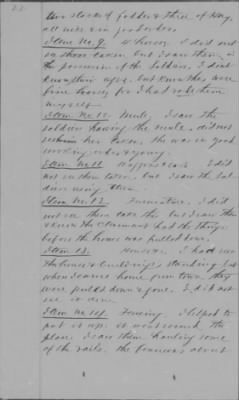 two stacks of fodder & three of Hay,
all were in good order.
Item No. 9. Horses, I did not
see them taken but I saw them in
the possession of the Soldiers, I dont
know their ages, but know they were
fine horses for I had rode them
myself.
Item No. 10. Mule, I saw the
soldiers having the mule, did not
see her taken, she was in good
working order, & young
Item No. 11. I did
not see them taken, but I saw the Sol-
diers using them.
Item No. 12. Furniture, I did
not see them take this but I saw this
& know the claimant had the things
before the house was pulled down.
Item 13. Houses. I had seen
the houses & buildings standing, but
when I came home from town, they
were pulled down & gone. I did not
see it done.
Item No. 14. Fencing. I helped to
put it up. it went round the
place. I saw them hauling some
of the rails. the fence was about